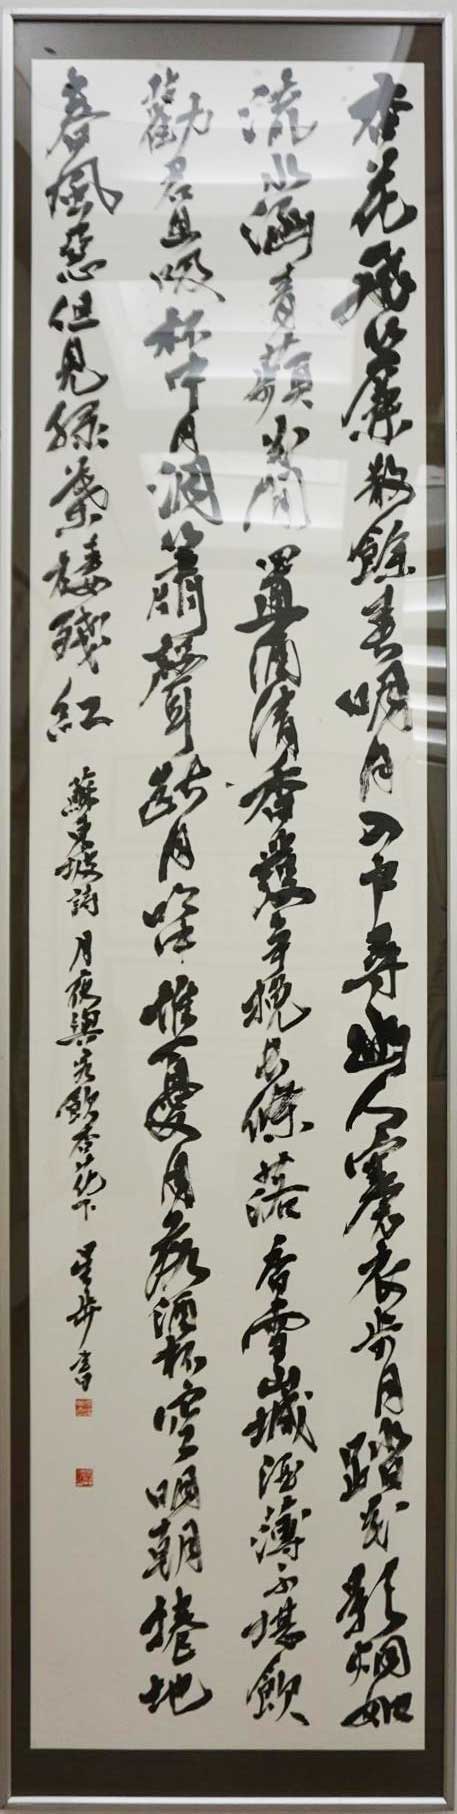 杏花飛簾散餘春明月入戶尋幽人褰衣步月踏花影炯如
流水涵青蘋花間置酒清香發爭挽長條落香雪山城酒薄不堪飲
勸君且吸杯中月洞簫聲斷月明中惟憂月落酒杯空明朝捲地
春風惡但見綠葉棲殘紅
蘇東坡詩 月夜與客飲杏花下 星步書